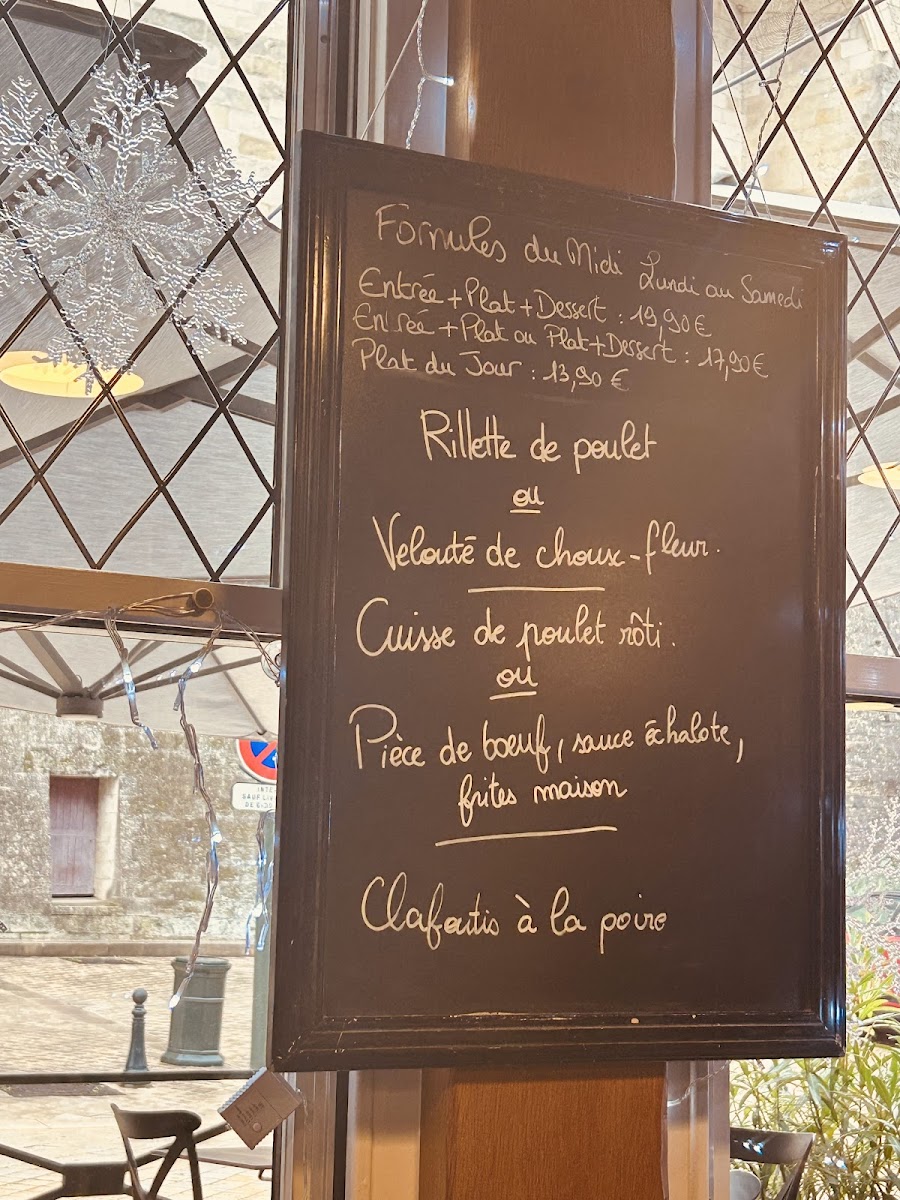 Formules du Midi Lundi au Samedi
Entrée + Plat + Dessert : 19,90 €
Entrée + Plat ou Plat + Dessert : 17,90 €
Plat du Jour : 13,90 €
Rillette de poulet
ou
Velouté de choux-fleur.
Cuisse de poulet rôti.
ou
Pièce de boeuf, sauce échalote,
frites maison
Clafoutis à la poire
SAUF LIV
DE 6H30